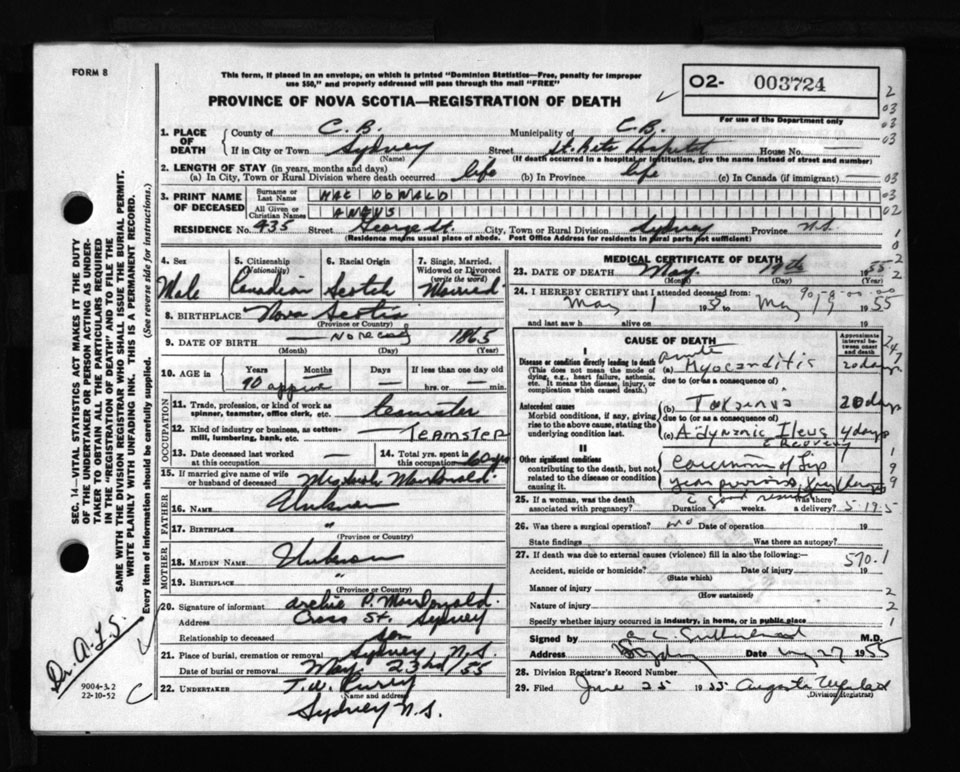 FORM 8
This form, if placed in an envelope, on which is printed "Dominion Statistics—Free, penalty for improper use $50," and properly addressed will pass through the mail "FREE"
02- 003724
For use of the Department only
PROVINCE OF NOVA SCOTIA—REGISTRATION OF DEATH
1. PLACE OF DEATH
County of C. B. Municipality of C.B.
If in City or Town Sydney Street St. Rita Hospital House No.
(Name) (If death occurred in a hospital or institution, give the name instead of street and number)
2. LENGTH OF STAY (in years, months and days)
(a) In City, Town or Rural Division where death occurred life (b) In Province life (c) In Canada (if immigrant) —
3. PRINT NAME OF DECEASED
Surname or Last Name MAC DONALD
All Given or Christian Names
RESIDENCE No. 435 Street George St. City, Town or Rural Division Sydney Province N.S.
(Residence means usual place of abode. Post Office Address for residents in rural parts not sufficient)
4. Sex Male
5. Citizenship (Nationality) Canadian
6. Racial Origin Scotch
7. Single, Married, Widowed or Divorced (write the word) Married
8. BIRTHPLACE Nova Scotia
(Province or Country)
9. DATE OF BIRTH — No record 1865
(Month) (Day) (Year)
10. AGE in Years Months Days If less than one day old
90 approx — — hrs. or — min.
OCCUPATION
11. Trade, profession, or kind of work as spinner, teamster, office clerk, etc. teamster
12. Kind of industry or business, as cotton-mill, lumbering, bank, etc. — TEAMSTER
13. Date deceased last worked at this occupation —
14. Total yrs. spent in this occupation 60 yrs
15. If married give name of wife or husband of deceased Mrs MacDonald.
FATHER
16. NAME Unknown
17. BIRTHPLACE "
(Province or Country)
MOTHER
18. MAIDEN NAME Unknown
19. BIRTHPLACE "
(Province or Country)
20. Signature of informant Archie P. MacDonald.
Address Cross St. Sydney
Relationship to deceased son
21. Place of burial, cremation or removal Sydney N.S.
Date of burial or removal May. 23rd/55
22. UNDERTAKER T. W. Curry
(Name and address)
Sydney N.S.
MEDICAL CERTIFICATE OF DEATH
23. DATE OF DEATH May. 19th 1955
(Month) (Day)
24. I HEREBY CERTIFY that I attended deceased from
May 1 to May 19 1955
and last saw h alive on 19
CAUSE OF DEATH
Approximate interval between onset and death
I
Disease or condition directly leading to death
(This does not mean the mode of dying, e.g., heart failure, asthenia, etc. It means the disease, injury, or complication which caused death.)
acute
(a) Myocarditis 20 days
due to (or as a consequence of)
Antecedent causes
Morbid conditions, if any, giving rise to the above cause, stating the underlying condition last.
(b) Toxemia 20 days
due to (or as a consequence of)
(c) Adynamic Ileus 4 days
c Recovery
II
Other significant conditions
contributing to the death, but not related to the disease or condition causing it.
Carcinoma of Lip
year previous, Xray therapy
c good result
25. If a woman, was the death associated with pregnancy? Duration weeks. Was there a delivery?
5-19-5
26. Was there a surgical operation? no Date of operation 19
State findings Was there an autopsy?
27. If death was due to external causes (violence) fill in also the following:—
570.1
Accident, suicide or homicide? Date of injury 19
(State which)
Manner of injury
(How sustained)
Nature of injury
Specify whether injury occurred in industry, in home, or in public place
Signed by Sutherland M.D.
Address Sydney Date May 27 1955
28. Division Registrar's Record Number
29. Filed June 25 1955
(Division Registrar)
SEC. 14—VITAL STATISTICS ACT MAKES IT THE DUTY OF THE UNDERTAKER OR PERSON ACTING AS UNDERTAKER TO OBTAIN ALL THE PARTICULARS REQUIRED IN THE "REGISTRATION OF DEATH" AND TO FILE THE SAME WITH THE DIVISION REGISTRAR WHO SHALL ISSUE THE BURIAL PERMIT.
WRITE PLAINLY WITH UNFADING INK. THIS IS A PERMANENT RECORD.
Every item of information should be carefully supplied. (See reverse side for instructions.)
Dr. A.L.S.
9004-3.2
22-10-52